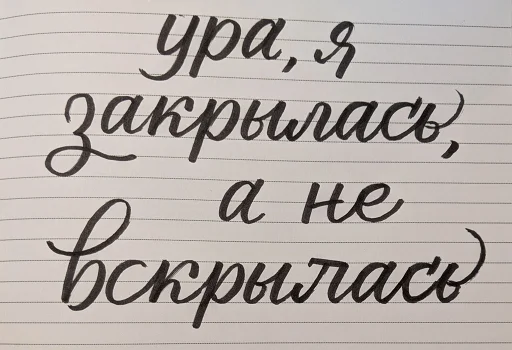 ура, я
закрылась,
а не
вскрылась